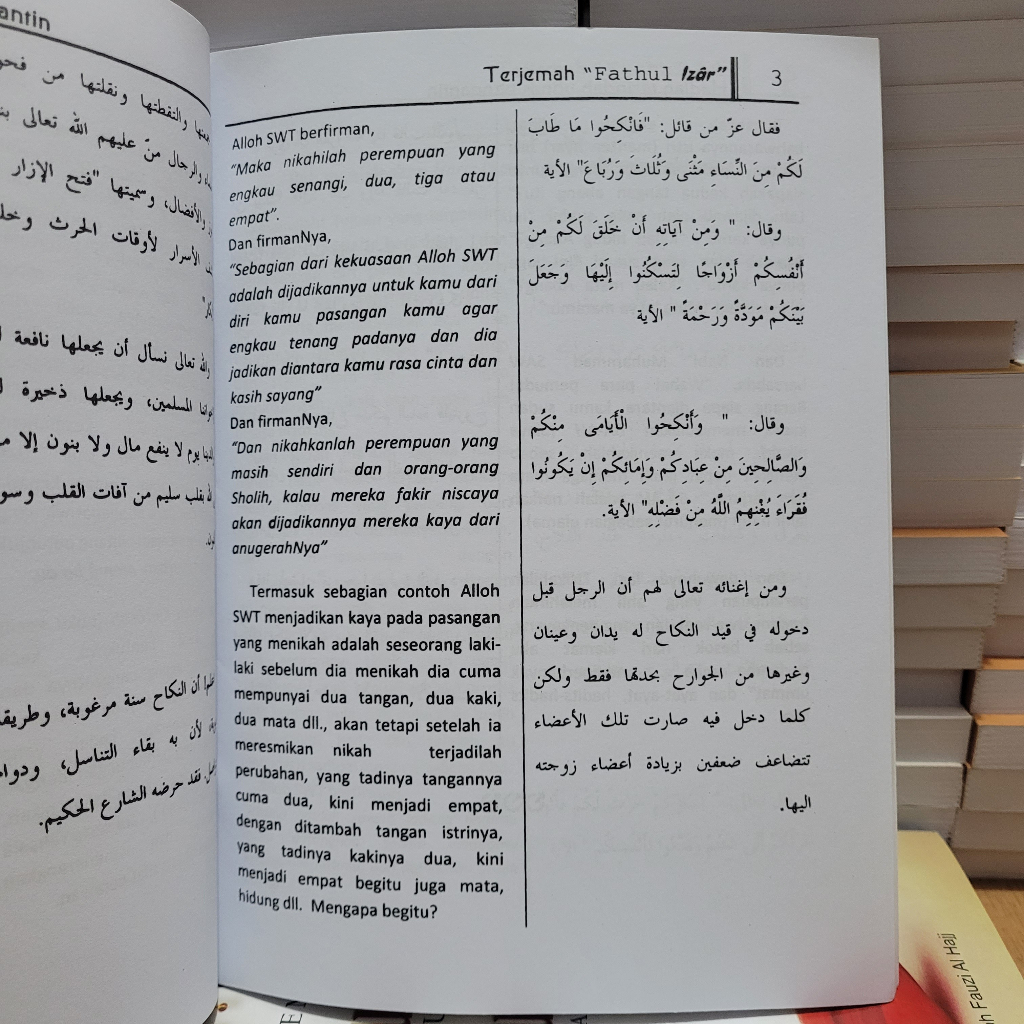 antin
ونقلتها من
والرجال منّ عليهم الله تعالى
والأفضال، وسميتها "فتح الإزار
الأسرار لأوقات الحرث
الله تعالى نسأل أن يجعلها نافعة
المسلمين، ويجعلها ذخيرة
يوم لا ينفع مال ولا بنون إلا
بقلب سليم من آفات القلب
أن النكاح سنة مرغوبة،
لأن به بقاء التناسل،
فقد حرضه الشارع الحكيم.
Terjemah "Fathul Izâr" 3
Alloh SWT berfirman,
"Maka nikahilah perempuan yang
engkau senangi, dua, tiga atau
empat".
Dan firmanNya,
"Sebagian dari kekuasaan Alloh SWT
adalah dijadikannya untuk kamu dari
diri kamu pasangan kamu agar
engkau tenang padanya dan dia
jadikan diantara kamu rasa cinta dan
kasih sayang"
Dan firmanNya,
"Dan nikahkanlah perempuan yang
masih sendiri dan orang-orang
Sholih, kalau mereka fakir niscaya
akan dijadikannya mereka kaya dari
anugerahNya"
Termasuk sebagian contoh Alloh
SWT menjadikan kaya pada pasangan
yang menikah adalah seseorang laki-
laki sebelum dia menikah dia cuma
mempunyai dua tangan, dua kaki,
dua mata dll., akan tetapi setelah ia
meresmikan nikah terjadilah
perubahan, yang tadinya tangannya
cuma dua, kini menjadi empat,
dengan ditambah tangan istrinya,
yang tadinya kakinya dua, kini
menjadi empat begitu juga mata,
hidung dll. Mengapa begitu?
فقال عزّ من قائل: "فَانْكِحُوا مَا طَابَ
لَكُمْ مِنَ النِّسَاءِ مَثْنَى وَثُلَاثَ وَرُبَاعَ" الأية
وقال: " وَمِنْ آيَاتِهِ أَنْ خَلَقَ لَكُمْ مِنْ
أَنْفُسِكُمْ أَزْوَاجًا لِتَسْكُنُوا إِلَيْهَا وَجَعَلَ
بَيْنَكُمْ مَوَدَّةً وَرَحْمَةً " الأية
وقال: " وَأَنْكِحُوا الْأَيَامَى مِنْكُمْ
وَالصَّالِحِينَ مِنْ عِبَادِكُمْ وَإِمَائِكُمْ إِنْ يَكُونُوا
فُقَرَاءَ يُغْنِهِمُ اللَّهُ مِنْ فَضْلِهِ" الأية.
ومن إغنائه تعالى لهم أن الرجل قبل
دخوله في قيد النكاح له يدان وعينان
وغيرها من الجوارح بحدهّا فقط ولكن
كلما دخل فيه صارت تلك الأعضاء
تتضاعف ضعفين بزيادة أعضاء زوجته
اليها.
h Fauzi Al Hajj